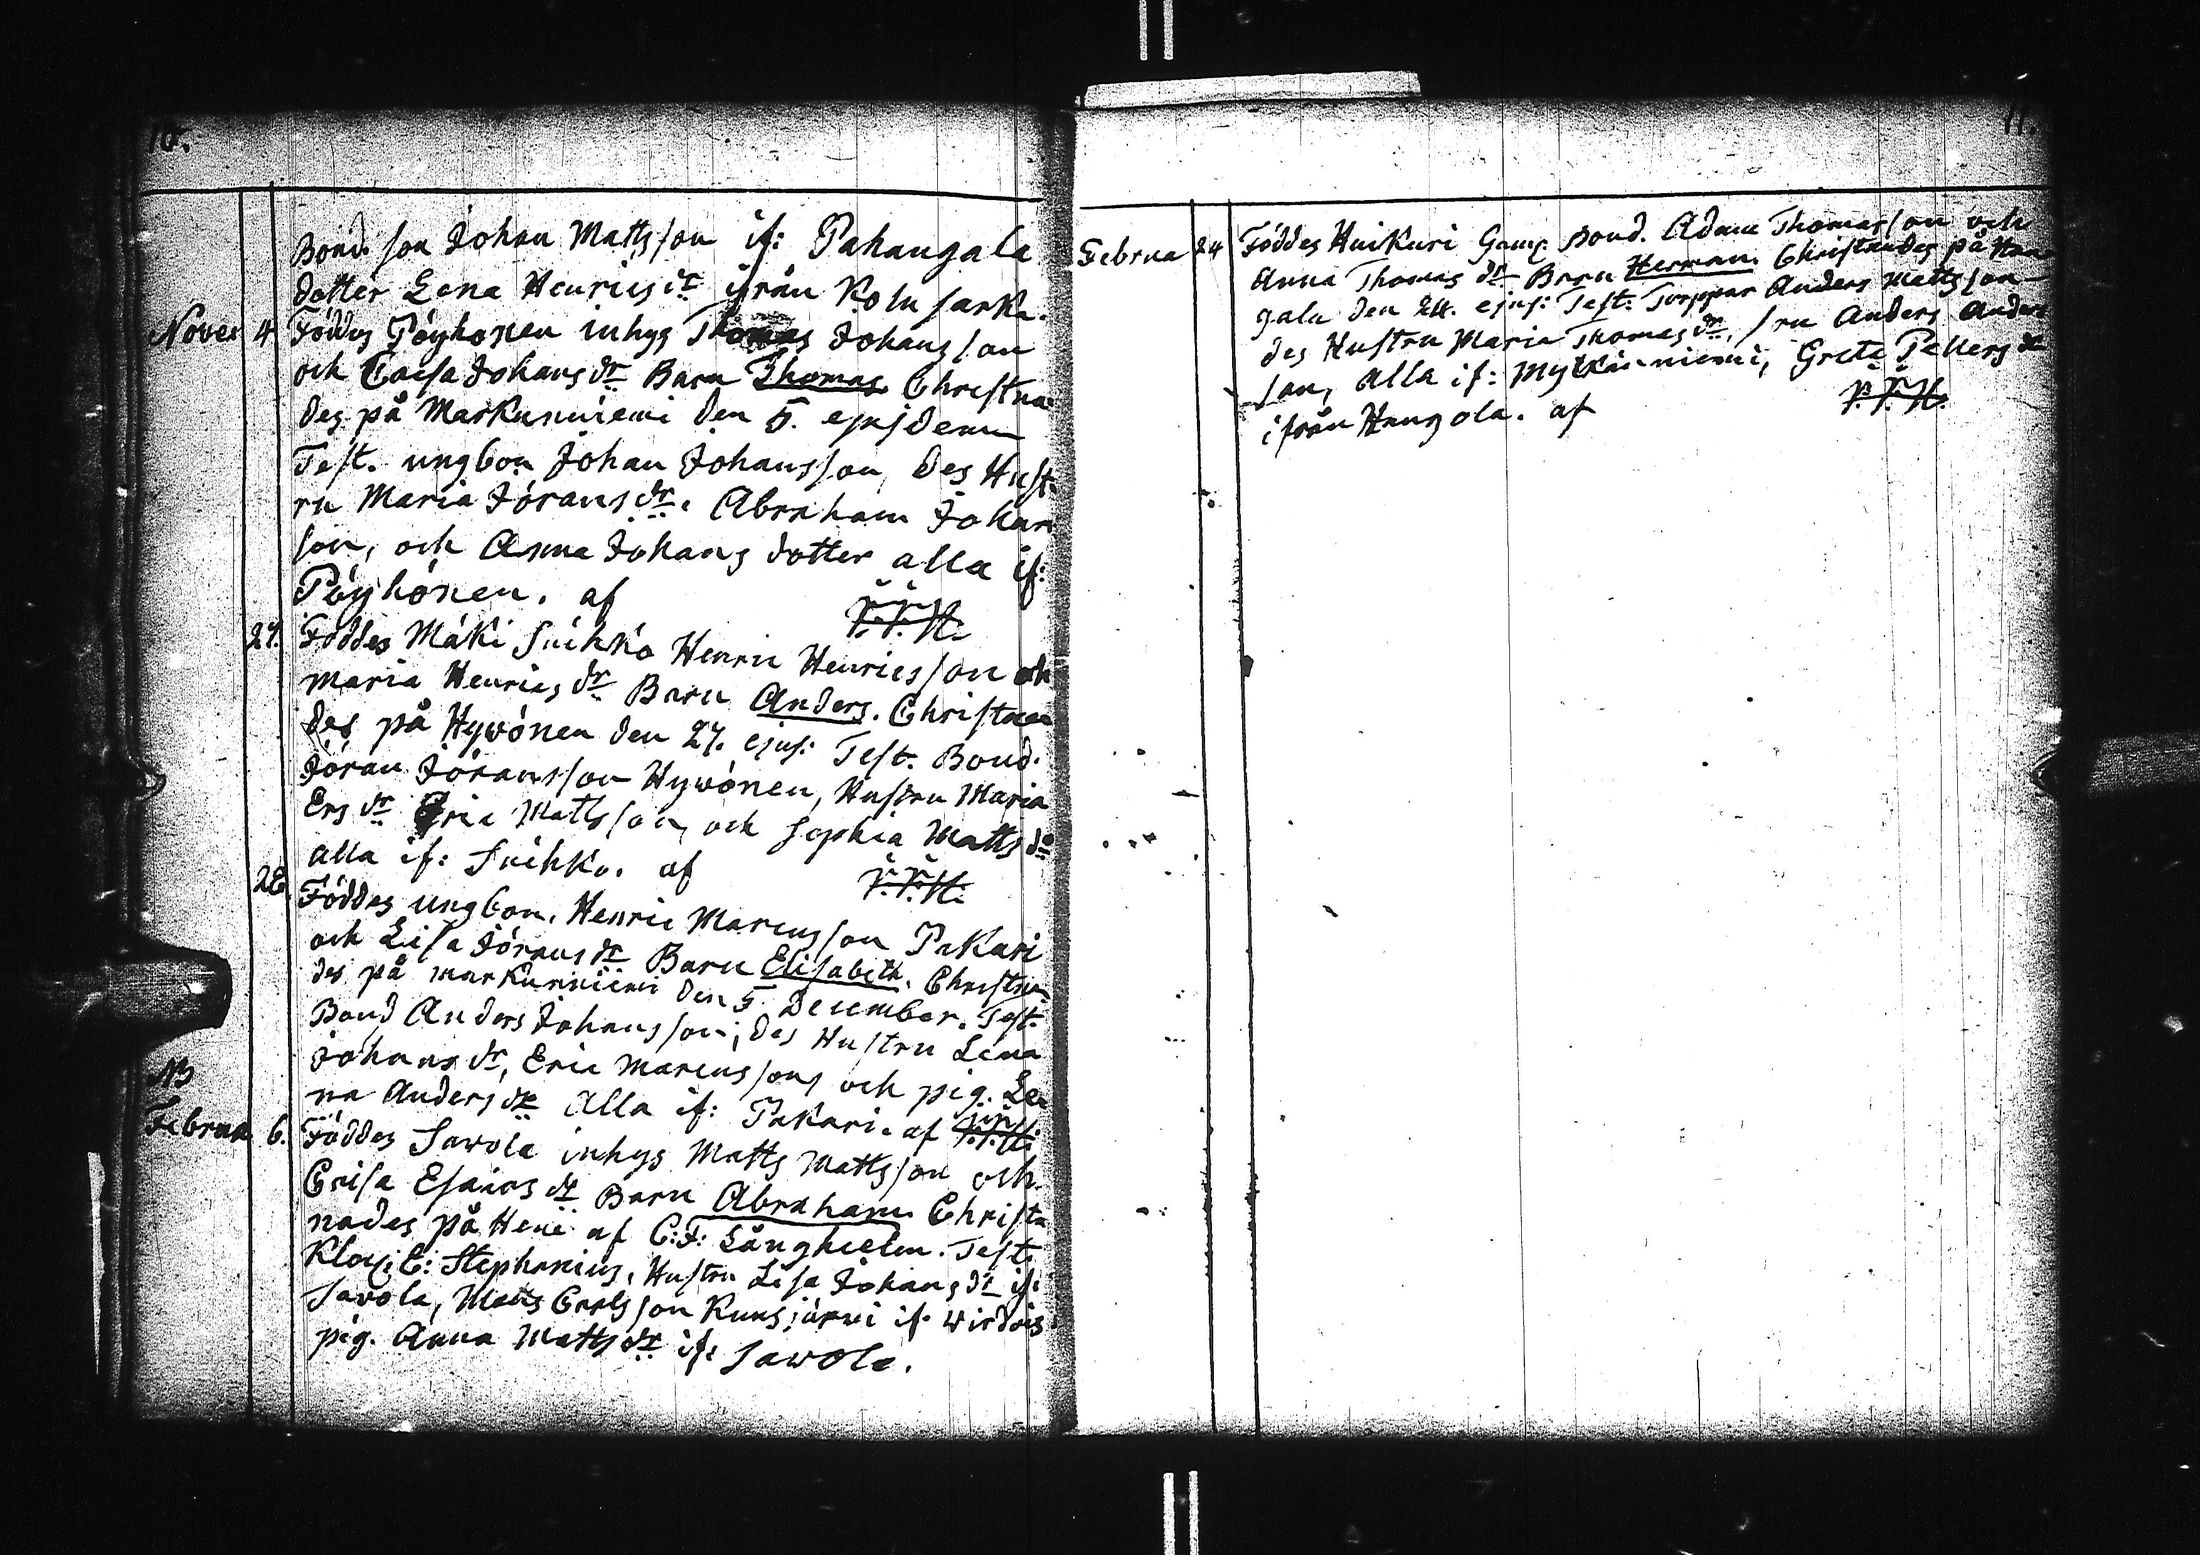 10.
Bond. son Johan Mattsson if: Pahangala
dotter Lena Henricsdr ifrån Kolusarka.
Novee 4 Föddes Pöyhönen inhys Thomas Johansson
och Caisa Johansdr Barn Thomas Christna-
des på Markunniemi den 5. ejusdem
Test. ungbon Johan Johansson, des Hust-
ru Maria Jöransdr. Abraham Johan
son, och Anna Johans dotter alla if:
Pöyhönen. af
27. Föddes Mäki Suihko Henric Henricsson och
Maria Henricsdr Barn Anders. Christna
des på Hywönen den 27. ejus: Test. Bond.
Jöran Jöransson Hywönen, Hustru Maria
Ersdr Eric Mattsson, och Sophia Mattsdr
alla if: Suihko. af
28 Föddes ungbon. Henric Marcusson Pakari
och Lisa Jöransdr Barn Elisabeth. Christna
des på Markunniemi den 5 December. Test.
Bond Anders Johansson, des Hustru Lena
Johansdr, Eric Marcusson, och pig. Le
na Andersdr Alla if: Pakari. af
NB
Februa 6. Föddes Sawola inhys Matts Mattsson och
Caisa Esaiasdr Barn Abraham Christ
nades på Heni af C:F: Långhielm. Test.
Kloc: E: Stephanius, Hustru Lisa Johansdr if:
Sawola, Matts Carlsson Kuusjärwi if. Wirdois
pig. Anna Mattsdr if: Sawola.
11.
Februa 24 Föddes Huikuri Gam: Bond. Adam Thomasson och
Anna Thomasdr Barn Herman. Christnades på Han
gala den 24. ejus: Test. Torppar Anders Mattsson
des Hustru Maria Thomasdr, Anders Anders
son, Alla if: Mytkäniemi, Greta Pellersdr
ifrån Hangola. af